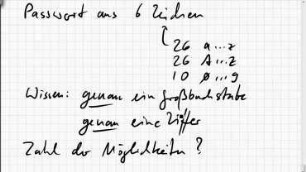 Passwort aus 6 Zeichen
26 a...z
26 A...Z
10 0...9
Wissen: genau ein Großbuchstabe
genau eine Ziffer
Zahl der Möglichkeiten ?